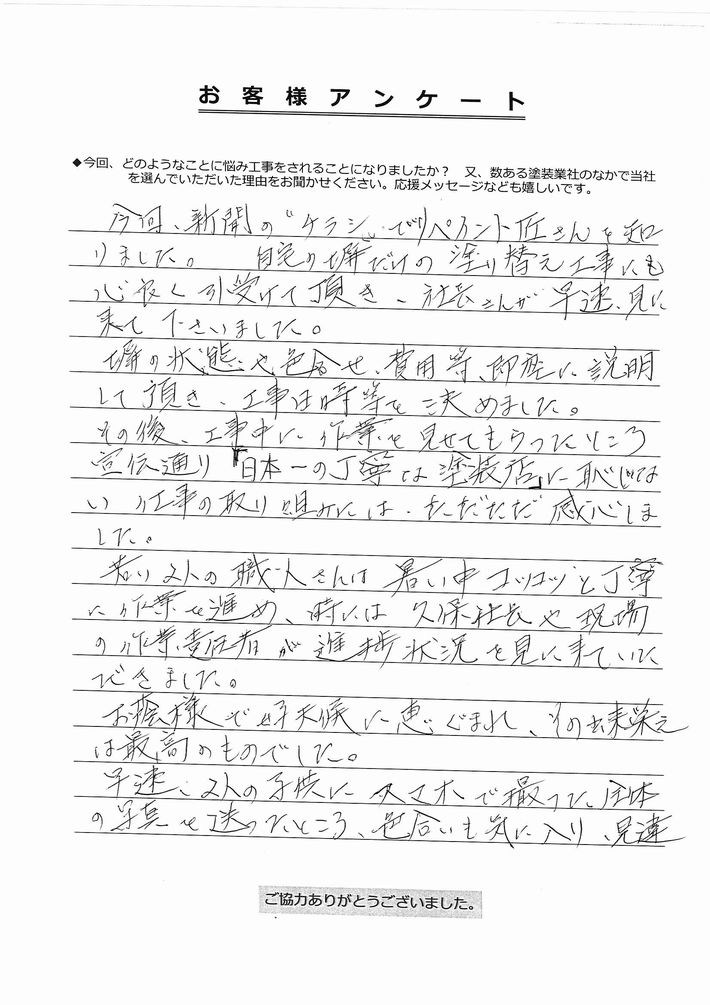 お客様アンケート
◆今回、どのようなことに悩み工事をされることになりましたか？　又、数ある塗装業社のなかで当社
を選んでいただいた理由をお聞かせください。応援メッセージなども嬉しいです。
今回、新聞の“チラシ”でペイント匠さんを知
りました。　自宅の塀だけの塗り替え工事にも
心良く引受けて頂き、社長さんが早速、見に
来て下さいました。
塀の状態や色合せ、費用等、即座に説明
して頂き、工事日時等を決めました。
その後、工事中に作業を見せてもらったところ
宣伝通り「日本一の丁寧な塗装店」に恥じな
い仕事の取り組みには、ただただ感心しま
した。
若い2人の職人さんは暑い中コツコツと丁寧
に作業を進め、時には久保社長や現場
の作業責任者が進捗状況を見に来ていた
できました。
お蔭様で好天候に恵ぐまれ、その出来栄え
は最高のものでした。
早速、2人の子供にスマホで撮った全体
の写真を送ったところ、色合いも気に入り、見違
ご協力ありがとうございました。